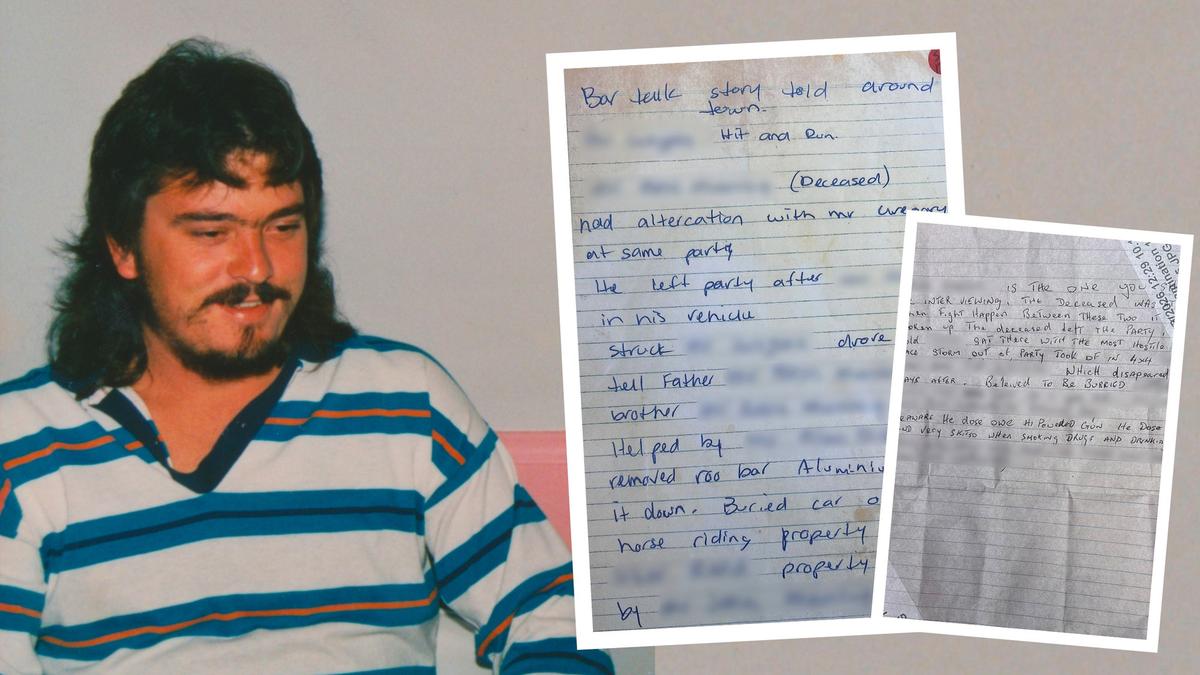 Bar talk story told around
town.
Hit and Run.
(Deceased)
had altercation with mr
at same party
He left party after
in his vehicle
struck drove
tell Father
brother
Helped by
removed roo bar Aluminiu
it down. Buried car o
horse riding property
property
by
IS THE ONE YOU
INTER VIEWING, THE Deceased WAS
hen Fight Happen Between These Two it
oken up The deceased left the PARTY,
old SAT THERE WITH THE MOST HOSTILE
ace STORM OUT of PARTY TOOK OF IN 4x4
WHICH disappeared
AYS AFTER. Beleived To Be BURRIED
EAWARE He dose owe Hi Powered GUN He Dose
ND very SKITSO WHEN SMOKING DRUGS AND DRINKIN
/2026 12:29 10
mination 1
JPG